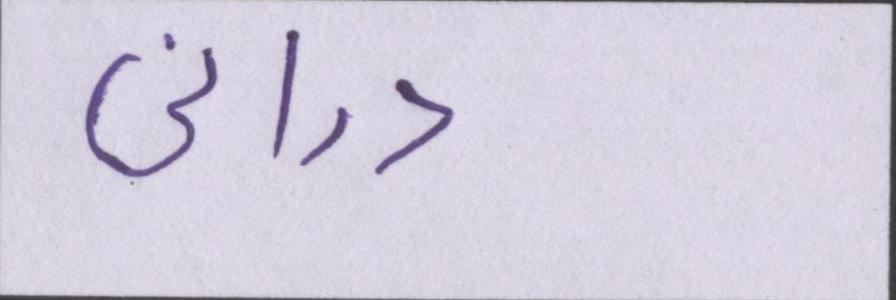 درانی